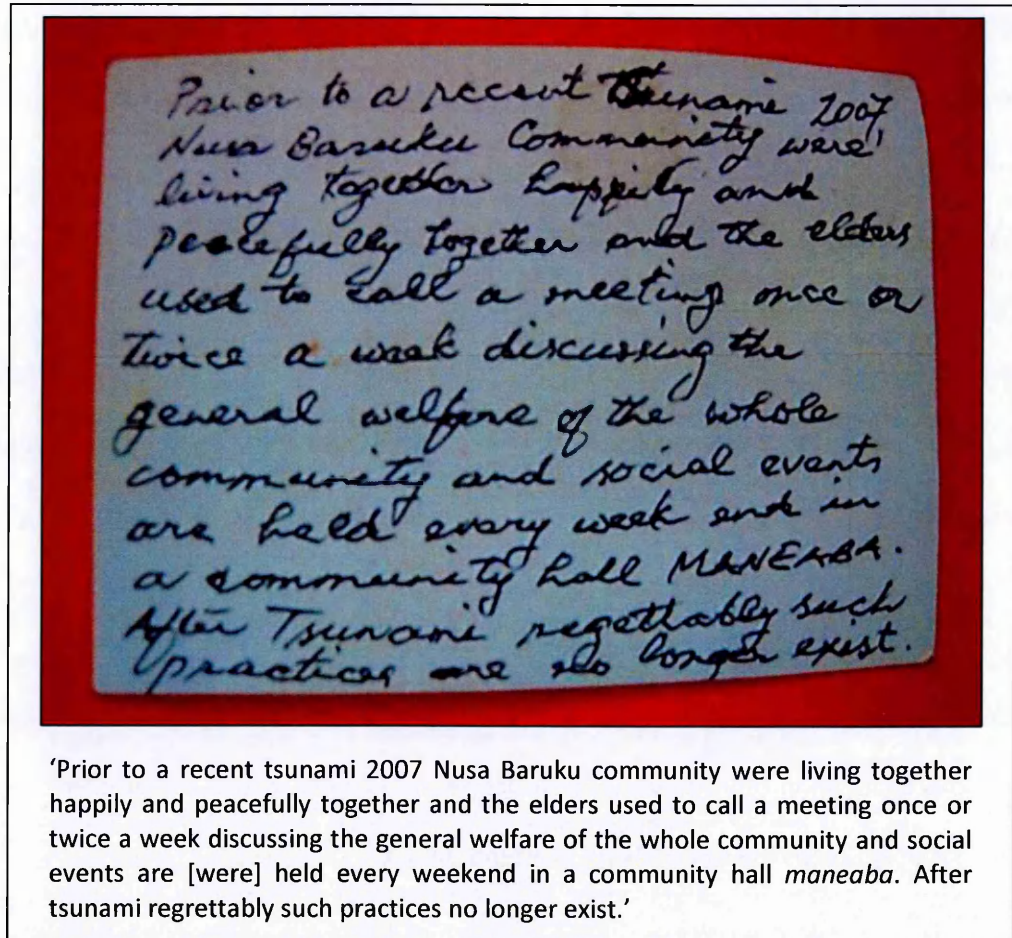 Prior to a recent Tsunami 2007
Nusa Baruku Community were
living together happily and
peacefully together and the elders
used to call a meeting once or
twice a week discussing the
general welfare of the whole
community and social events
are held every week end in
a community hall MANEABA.
After Tsunami regettably such
practices are no longer exist.
‘Prior to a recent tsunami 2007 Nusa Baruku community were living together
happily and peacefully together and the elders used to call a meeting once or
twice a week discussing the general welfare of the whole community and social
events are [were] held every weekend in a community hall maneaba. After
tsunami regrettably such practices no longer exist.’